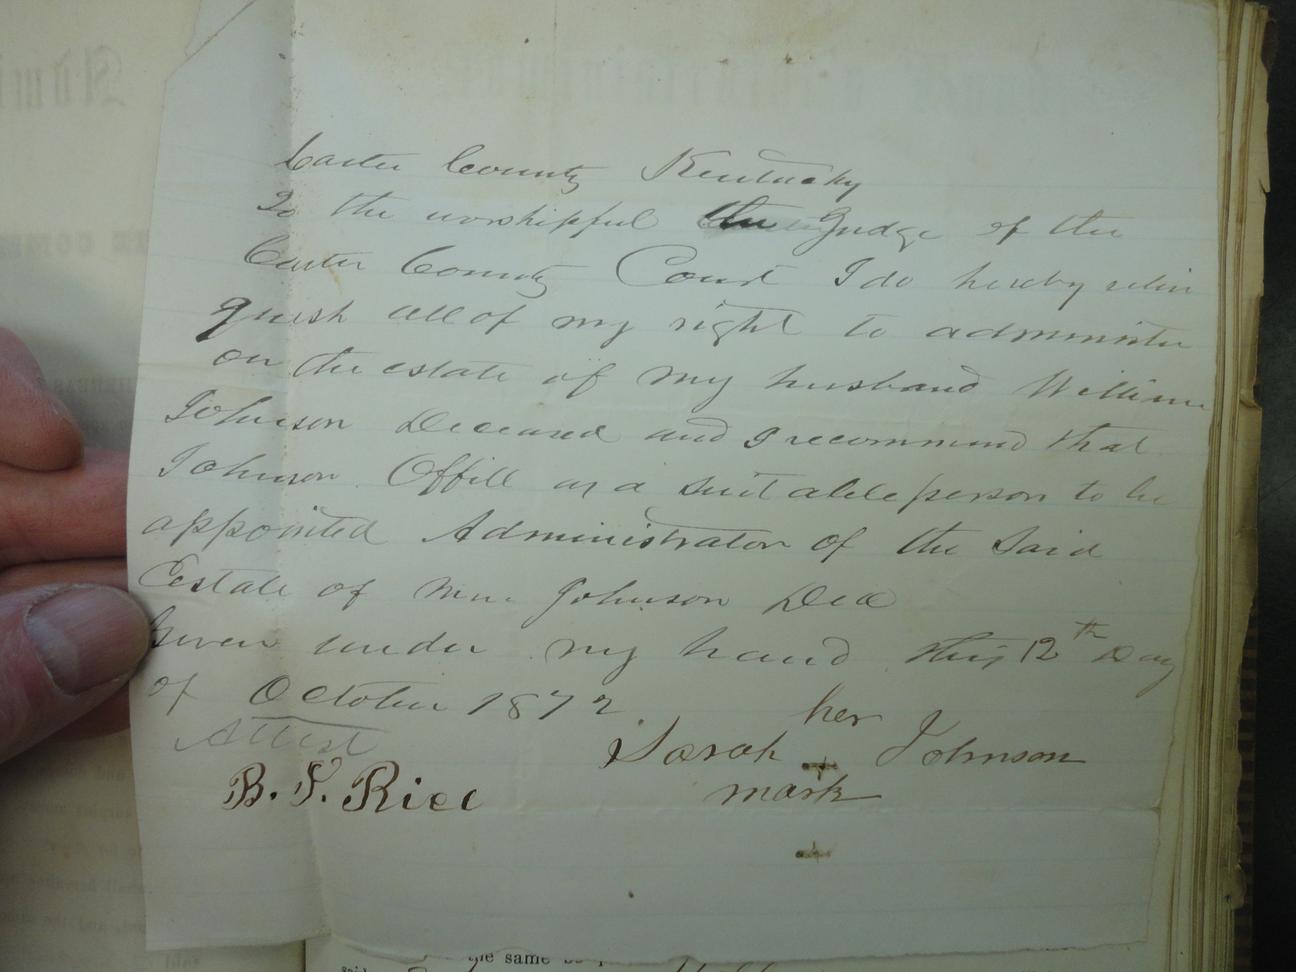 Carter County Kentucky
To the worshipful the Judge of the
Carter County Court I do hereby relin
quish all of my right to administer
on the estate of my husband William
Johnson Deceased and I recommend that
Johnson Offill as a suitable person to be
appointed Administrator of the Said
Eestate of Wm Johnson Decd
Given under my hand this 12th Day
of October 1872
her
Attest Sarah + Johnson
B. F. Rice mark
the same